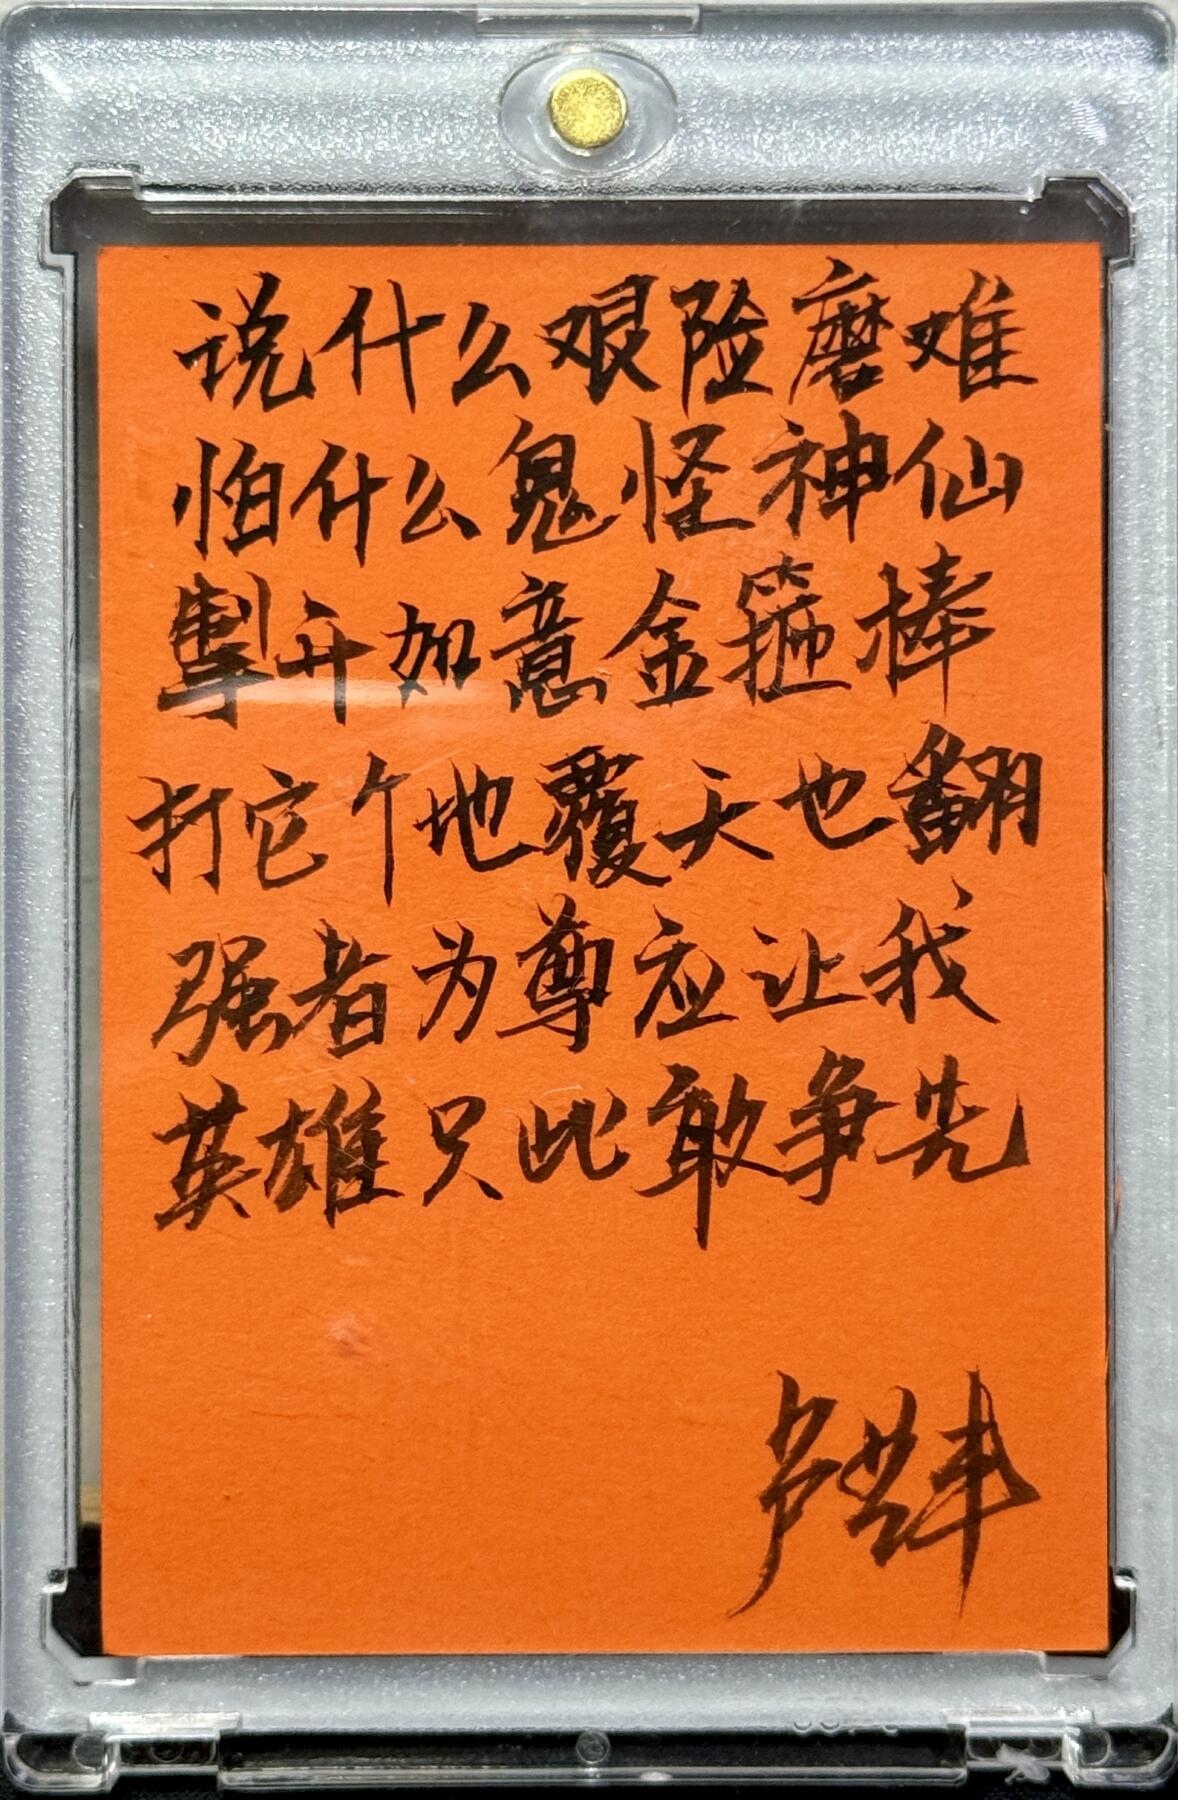 说什么艰险磨难
怕什么鬼怪神仙
掣开如意金箍棒
打它个地覆天也翻
强者为尊应让我
英雄只此敢争先